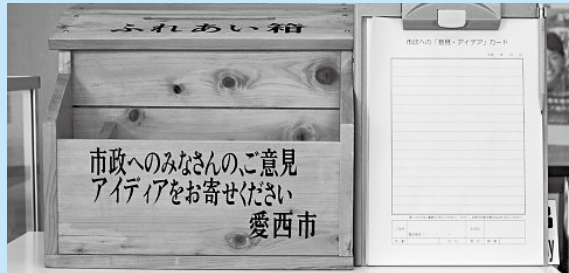 ふれあい箱
市政へのみなさんのご意見
アイディアをお寄せください
愛西市
市政への「意見・アイデア」カード